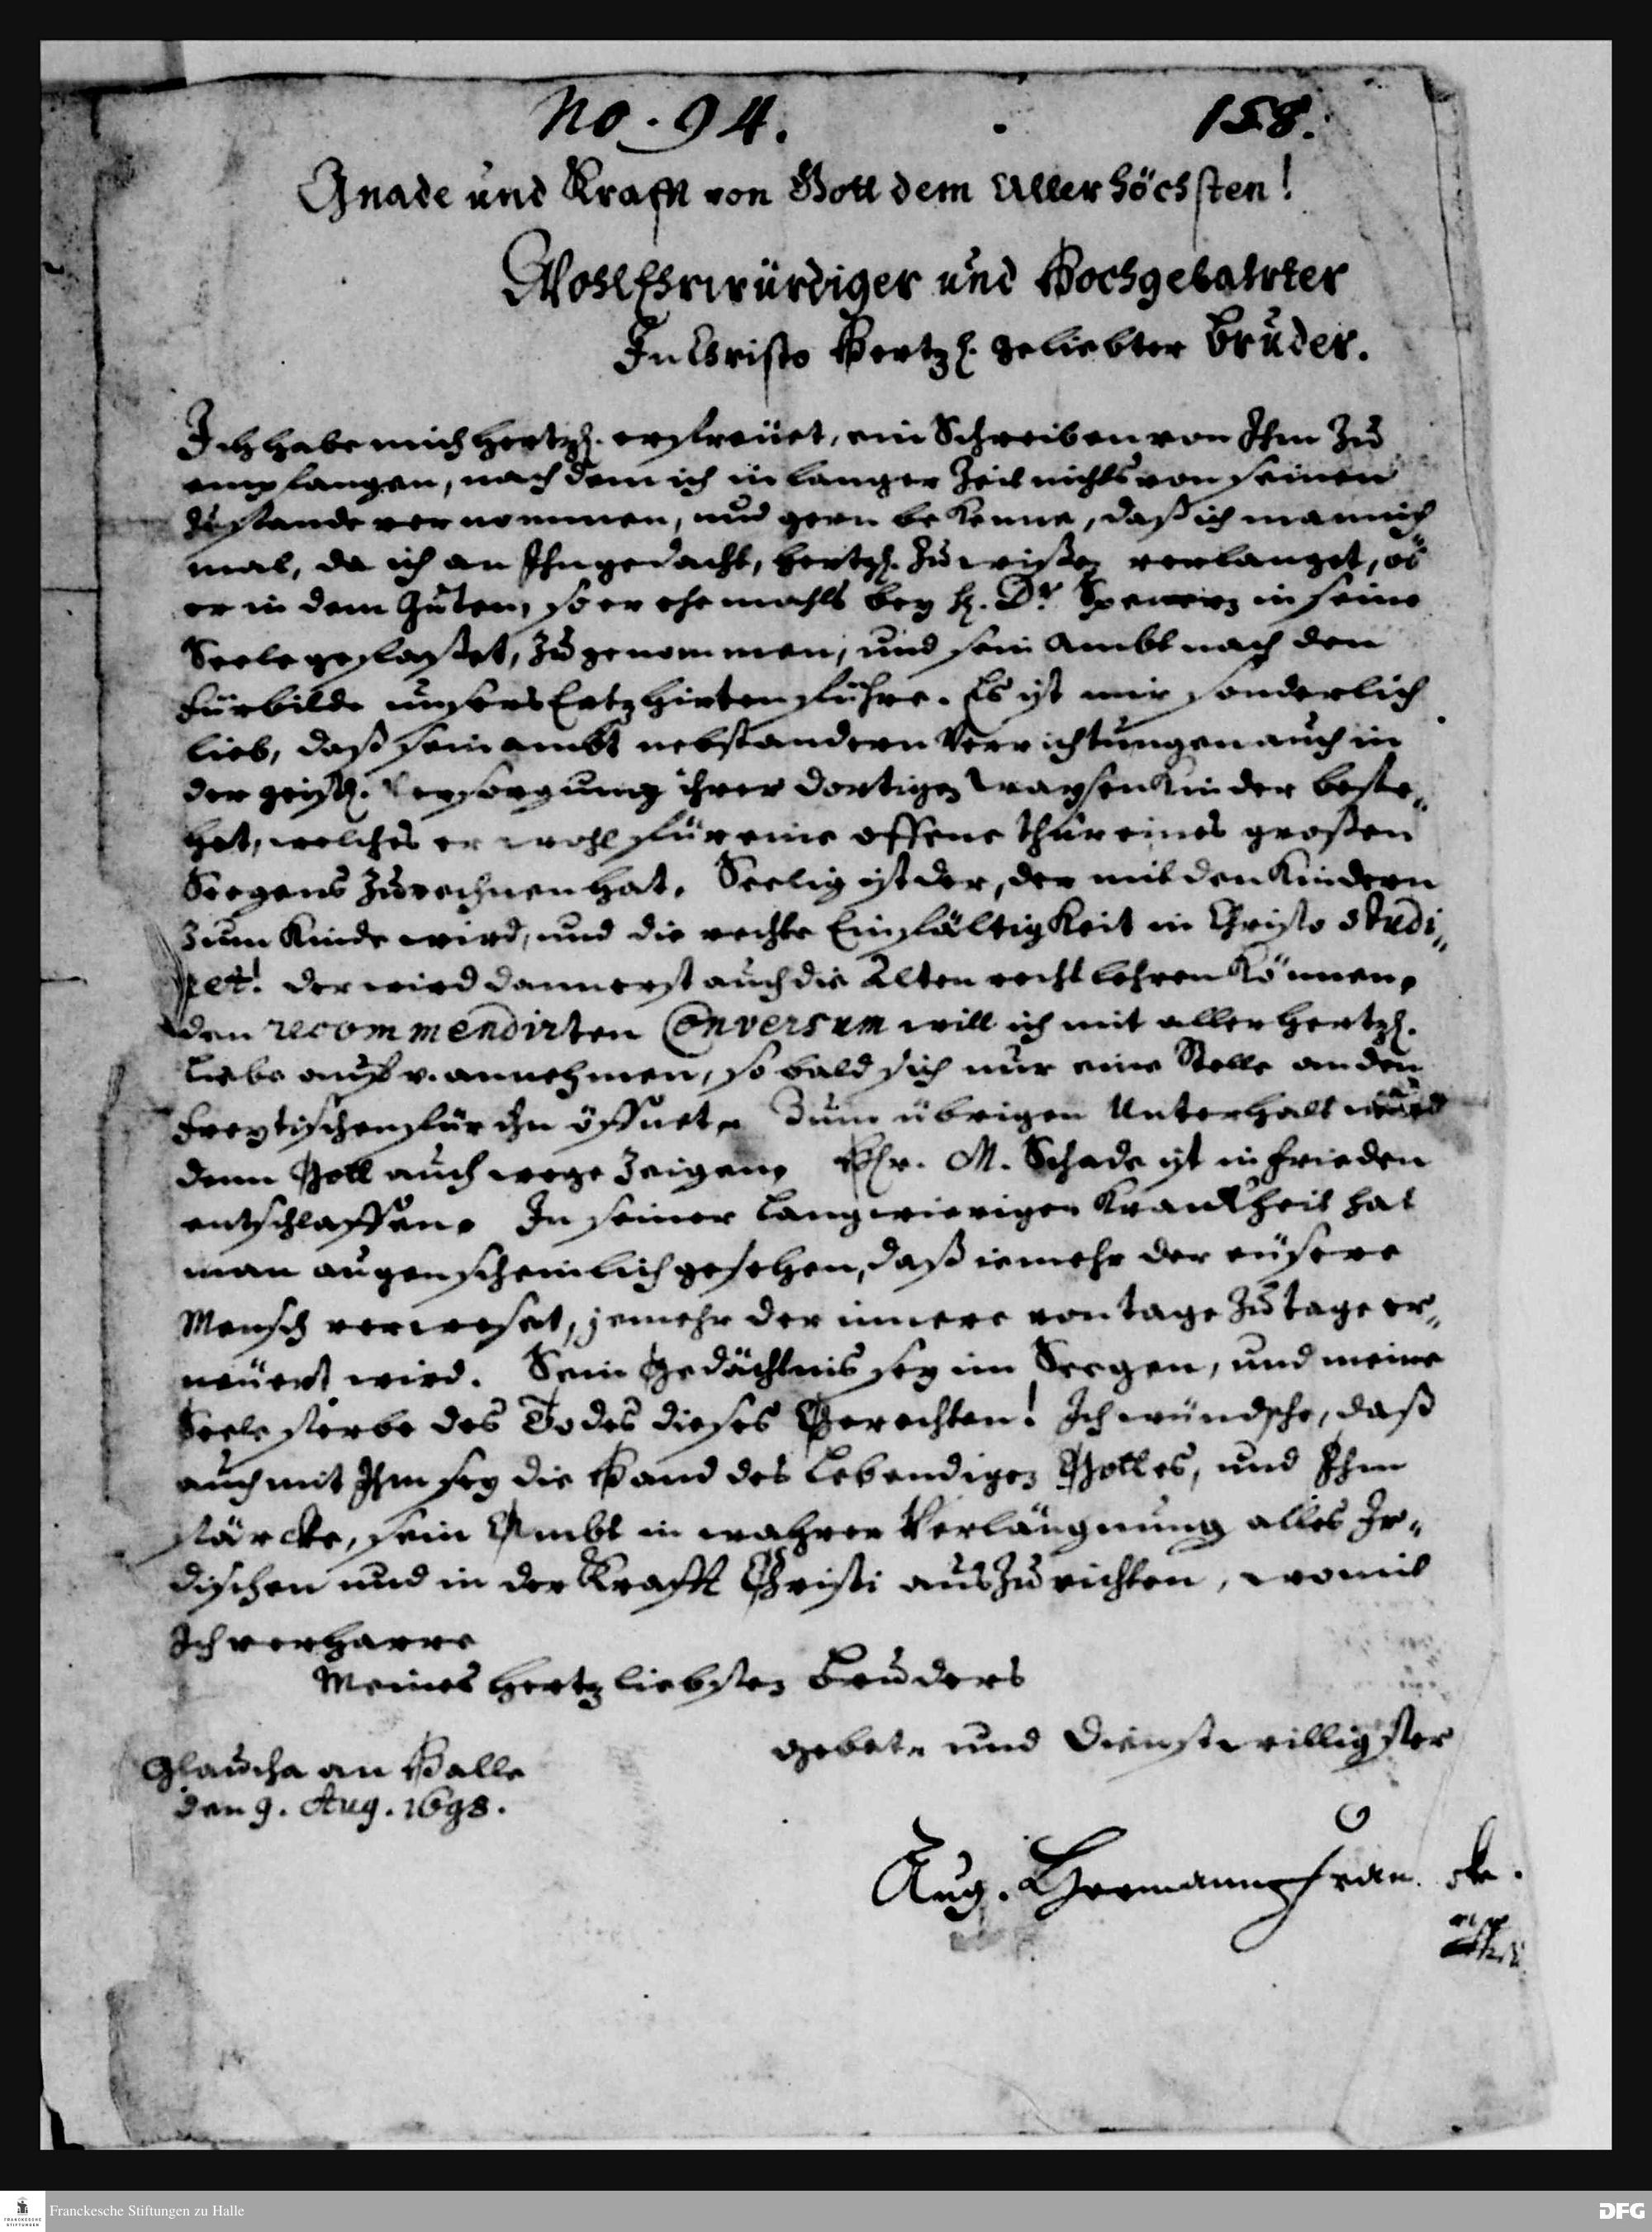 No. 94. 158.
Gnade und Krafft von Gott dem Allerhöchsten!
WohlEhrwürdiger und Hochgelahrter
In Christo Hertzl. geliebter Bruder.
Ich habe mich hertzl. erfreuet, ein Schreiben von Ihm zu
empfangen, nach dem ich in langer Zeit nichts von seinen
Zustande vernommen, und gern bekenne, daß ich mannich
mal, da ich an Ihn gedacht, hertzl. zu wißen verlanget, ob
er in dem Guten, so er ehemahls bey H. Dr. Spenern in seine
Seele gefaßet, zugenommen, und sein Ambt nach den
Fürbilde unsers Ertzhirten führe. Es ist mir sonderlich
lieb, daß sein ambt nebst andern Verrichtungen auch in
der geistl. Versorgung ihrer dortigen Waysenkinder beste„
het, welches er wohl für eine offene thür eines großen
Seegens zu rechnen hat. Seelig ist der, der mit den Kindern
zum Kinde wird, und die rechte Einfältigkeit in Christo studi„
ret! der wird dann erst auch die Alten recht lehren können.
den recommendirten Conversum will ich mit aller hertzl.
Liebe auf v. annehmen, so bald sich nur eine Stelle an den
Freytischen für ihn öffnet. Zum übrigen Unterhalt wird
denn Gott auch wege zeigen. Hr. M. Schade ist in frieden
entschlaffen. In seiner langwierigen Kranckheit hat
man augenscheinlich gesehen, daß iemehr der eusere
Mensch verweset, jemehr der innere von tage zu tage er„
neuert wird. Sein Gedächtnis sey im Seegen, und meine
Seele sterbe des Todes dieses Gerechten! Ich wündsche, daß
auch mit Ihm sey die Hand des Lebendigen Gottes, und Ihm
stärcke, sein Ambt in wahrer Verläugnung alles Ir„
dischen und in der Krafft Christi auszurichten, womit
Ich verharre
Meines hertzliebsten Bruders
gebet- und Dienstwilligster
Glaucha an Halle
den 9. Aug. 1698.
Aug. Hermann Francke.
Franckesche Stiftungen zu Halle
DFG